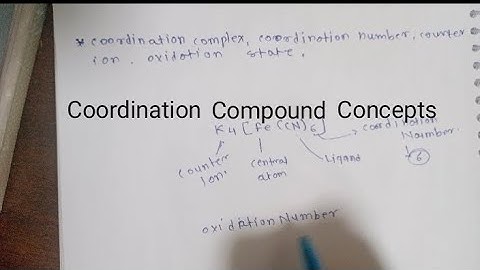 * coordination complex, coordination number, counter
ion, oxidation state.
Coordination Compound Concepts
K4[Fe(CN)6]
coordination
Number
6
counter
ion
central
atom
Ligand
oxidation Number